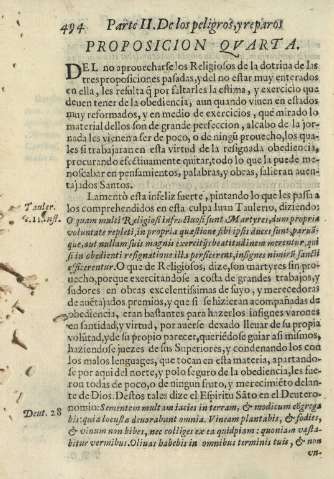 494 Parte II. De los peligros, y reparos
PROPOSICION QVARTA.
DEL no aprouecharse los Religiosos de la dotrina de las
tres proposiciones pasadas, y del no estar muy enterados
en ella, les resulta q̃ por faltarles la estima, y exercicio que
deuen tener de la obediencia, aun quando viuen en estados
muy reformados, y en medio de exercicios, que mirado lo
material dellos son de grande perfeccion, al cabo de la jor-
nada les viene a ser de poco, o de ningũ prouecho, los qua-
les si trabajaran en esta virtud de la resignada obediencia,
procurando efectiuamente quitar, todo lo que la puede me-
noscabar en pensamientos, palabras, y obras, salieran auen-
tajados Santos.
Lamentò esta infeliz suerte, pintando lo que les pasa a
los comprehendidos en esta culpa Iuan Taulero, diziendo:
Tauler.
O quam multi Religiosi infructuosi sunt Martyres, dum propria
voluntate repleti, in propria quæstione sibi ipsi duces sunt, parũ-
que, aut nullam suis magnis exercitijs beatitudinem merentur, qui
si in obedienti resignatione illa perficerent, insignes nimirũ sancti
efficerentur. O que de Religiosos, dize, son martyres sin pro-
uecho, porque exercitandose a costa de grandes trabajos, y
sudores en obras excelentissimas de suyo, y merecedoras
de auẽtajados premios, y que si se hizieran acompañadas de
obediencia, eran bastantes para hazerlos insignes varones
en santidad, y virtud, por auerse dexado lleuar de su propia
volũtad, y de su propio parecer, queriẽdose guiar a si mismos,
haziendose juezes de sus Superiores, y condenando los con
los malos lenguages, que tocan en esta materia, apartando-
se por aqui del norte, y polo seguro de la obediencia, les fue-
ron todas de poco, o de ningun fruto, y merecimiẽto delan-
te de Dios. Destos tales dize el Espiritu Sãto en el Deutero-
Deut. 28
nomio: Sementem multam iacies in terram, & modicum cõgrega
bis: quia locustæ deuorabunt omnia. Vineam plantabis, & fodies,
& vinum non bibes, nec colliges ex ea quidpiam: quoniam vasta-
bitur vermibus. Oliuas habebis in omnibus terminis tuis, & non
vn-